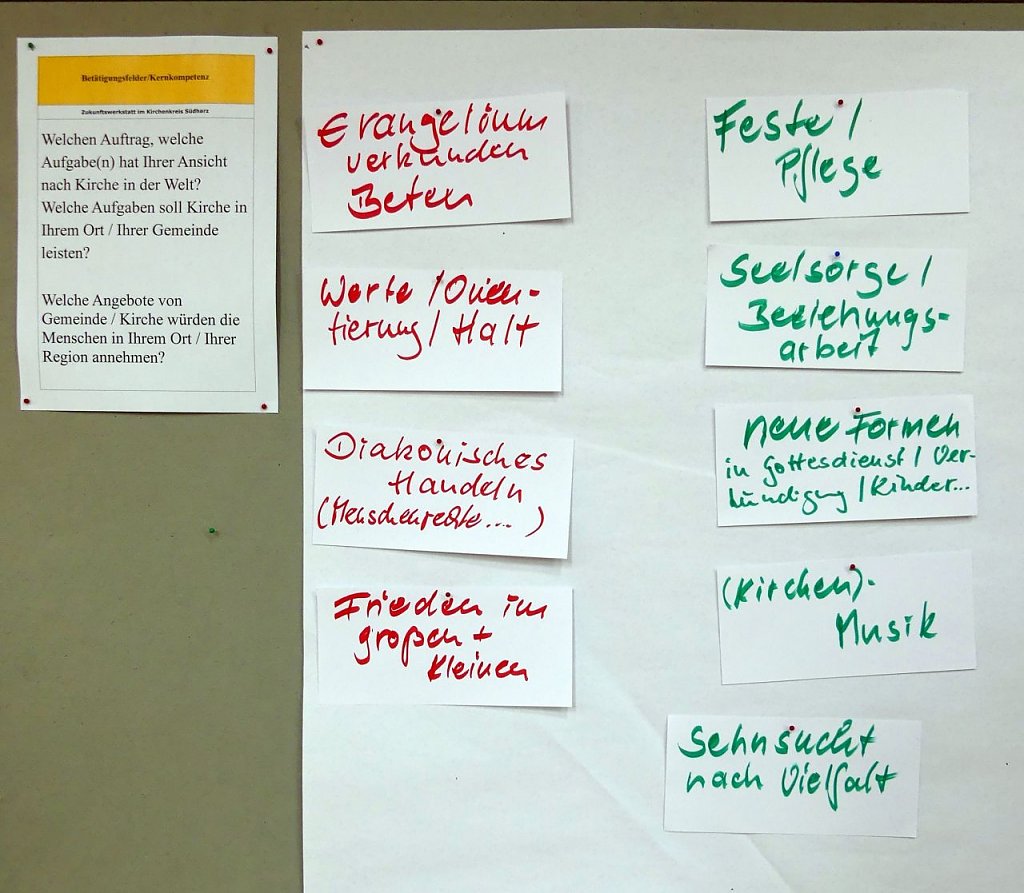 Betätigungsfelder/Kernkompetenz
Zukunftswerkstatt im Kirchenkreis Südharz
Welchen Auftrag, welche
Aufgabe(n) hat Ihrer Ansicht
nach Kirche in der Welt?
Welche Aufgaben soll Kirche in
Ihrem Ort / Ihrer Gemeinde
leisten?
Welche Angebote von
Gemeinde / Kirche würden die
Menschen in Ihrem Ort / Ihrer
Region annehmen?
Evangelium
verkünden
Beten
Werte / Orien-
tierung / Halt
Diakonisches
Handeln
(Menschenrechte...)
Frieden im
großen +
kleinen
Feste /
Pflege
Seelsorge /
Beziehungs-
arbeit
neue Formen
in Gottesdienst / Ver-
kündigung / Kinder...
(Kirchen)-
Musik
Sehnsucht
nach Vielfalt